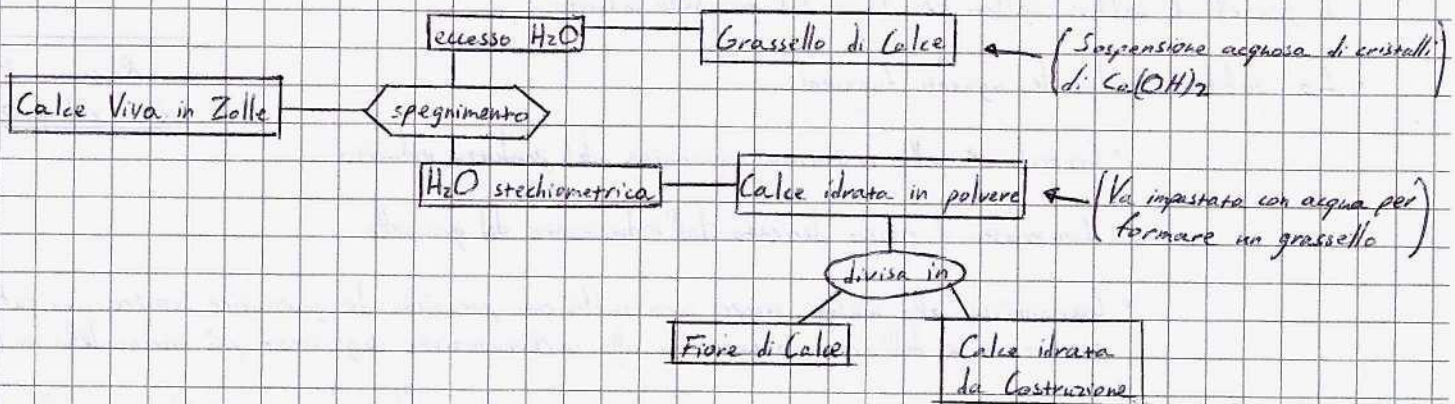 eccesso H2O
Grassello di Calce
(Sospensione acquosa di cristalli
di Ca(OH)2)
Calce Viva in Zolle
spegnimento
H2O stechiometrica
Calce idrata in polvere
(Va impastata con acqua per
formare un grassello)
divisa in
Fiore di Calce
Calce idrata
da Costruzione